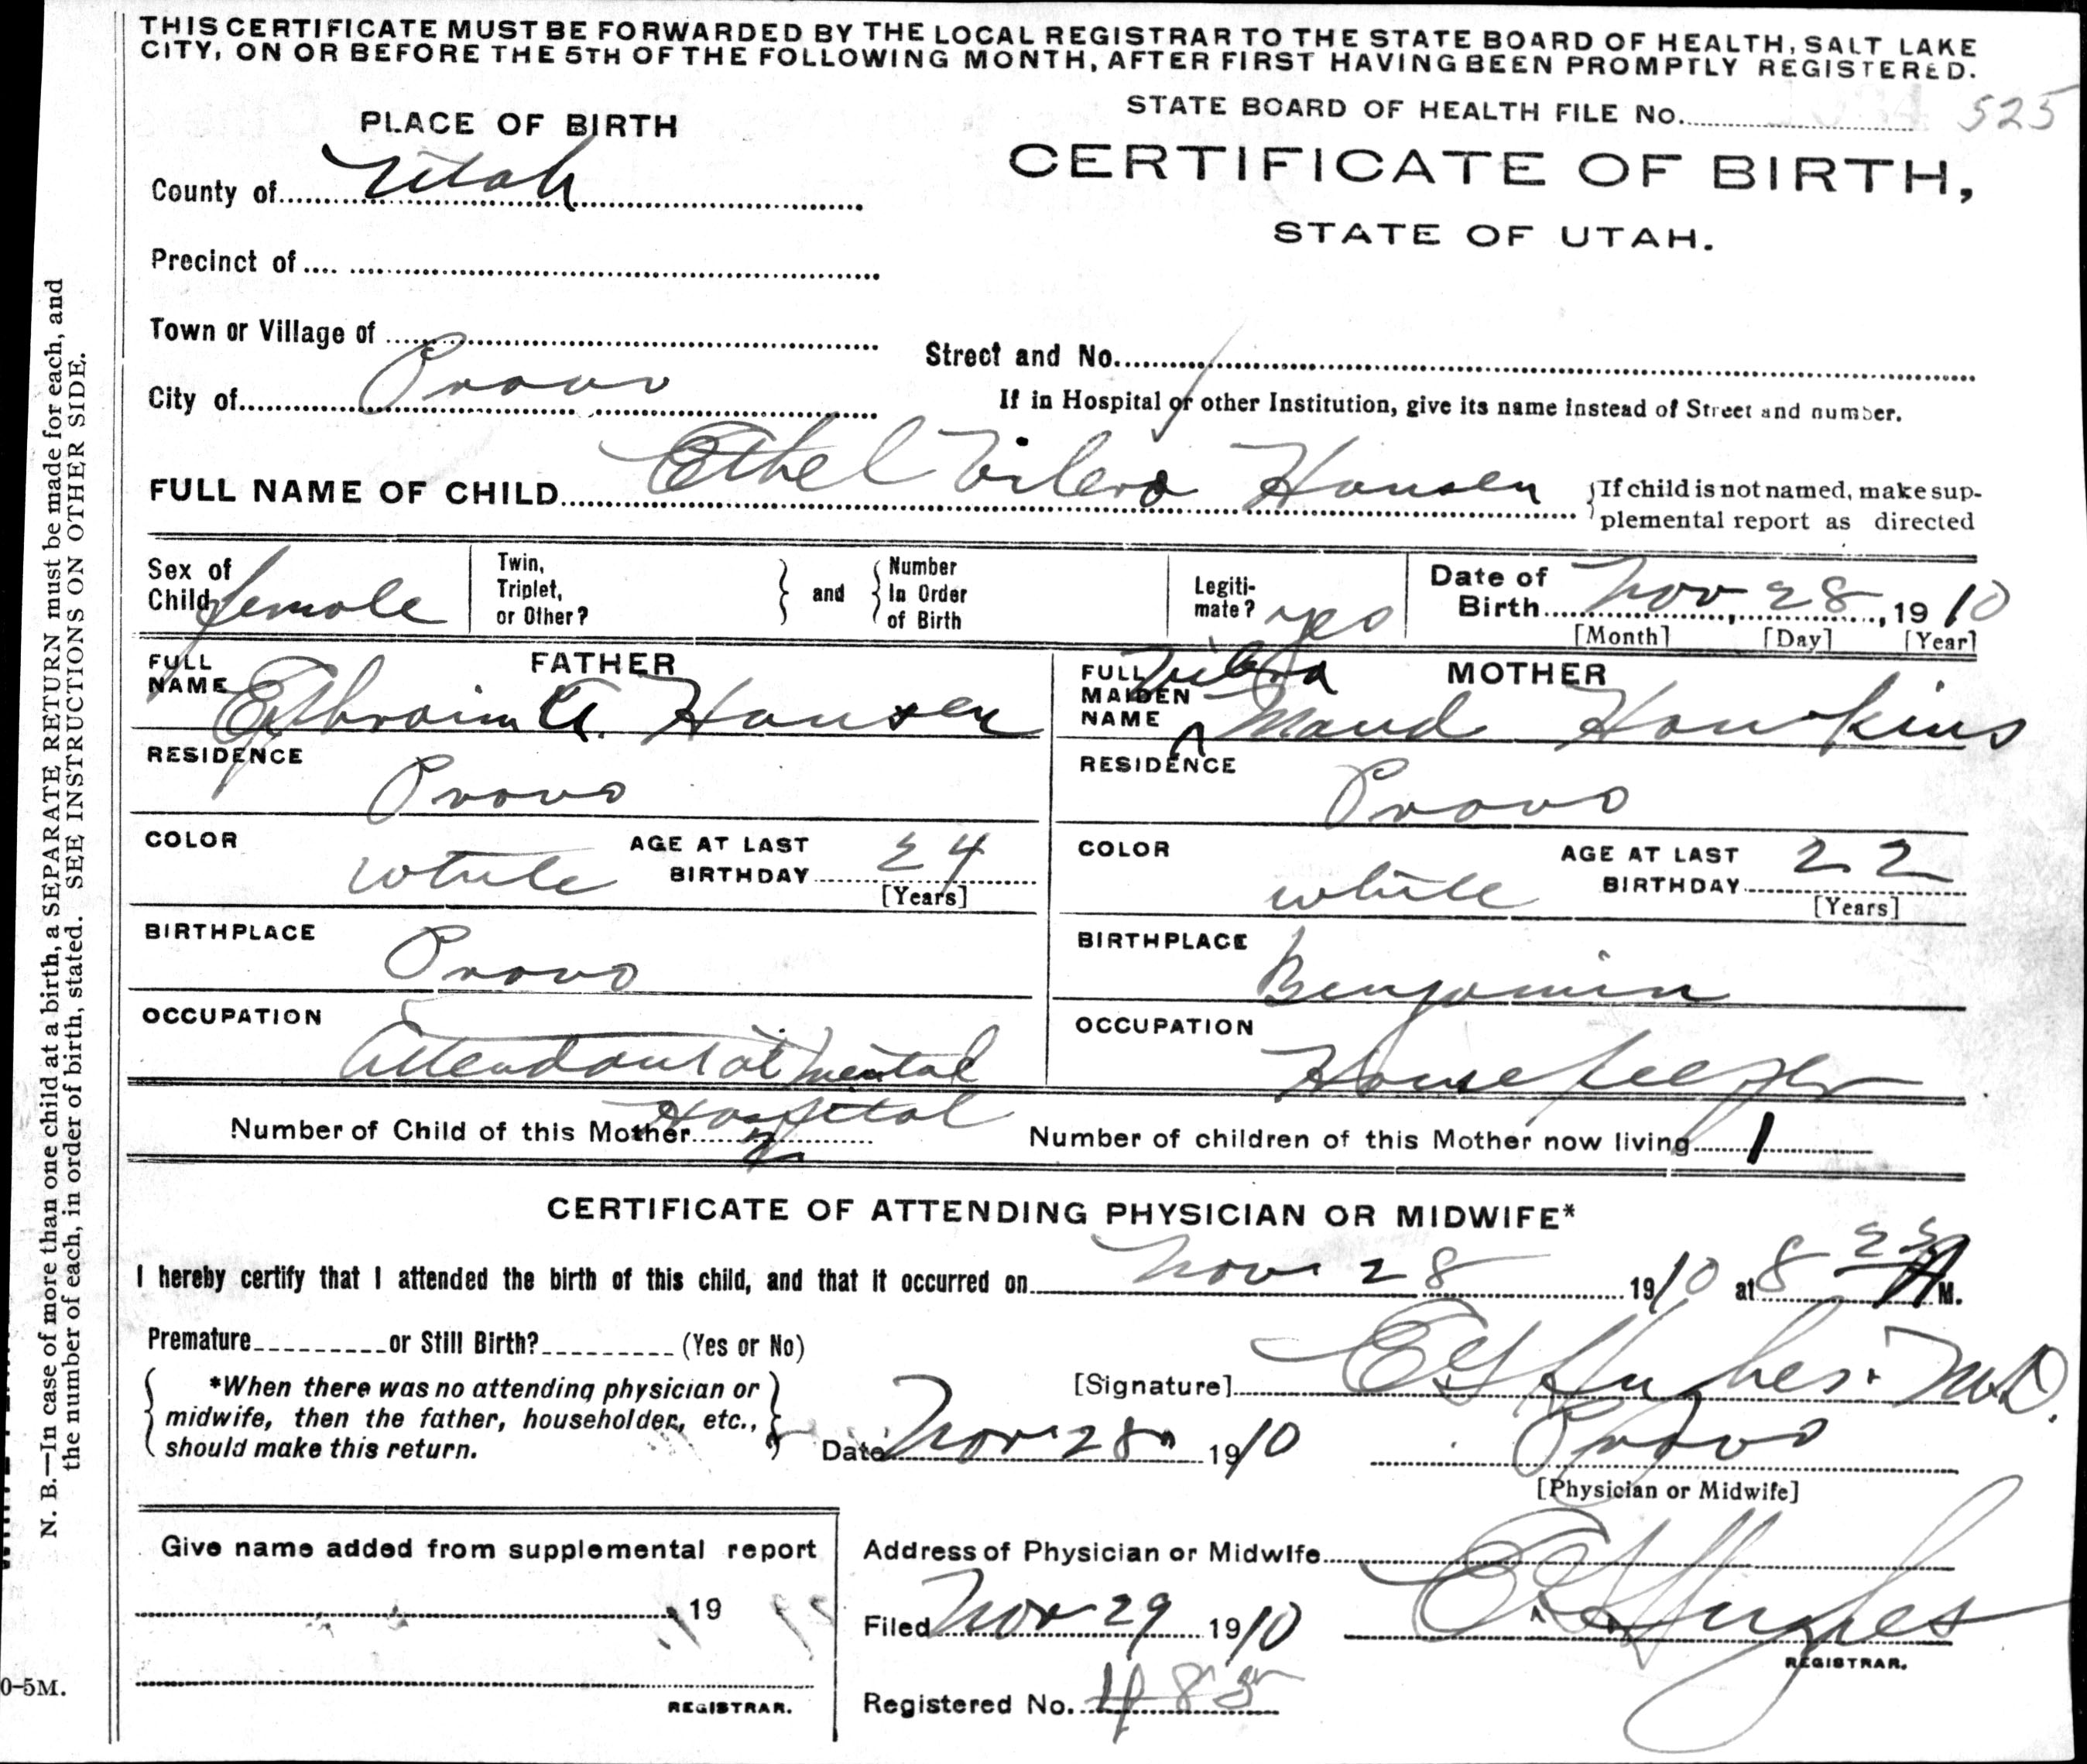 THIS CERTIFICATE MUST BE FORWARDED BY THE LOCAL REGISTRAR TO THE STATE BOARD OF HEALTH, SALT LAKE
CITY, ON OR BEFORE THE 5TH OF THE FOLLOWING MONTH, AFTER FIRST HAVING BEEN PROMPTLY REGISTERED.
STATE BOARD OF HEALTH FILE No. 525
PLACE OF BIRTH
CERTIFICATE OF BIRTH,
STATE OF UTAH.
County of Utah
Precinct of
Town or Village of
Street and No.
City of Provo
If in Hospital or other Institution, give its name instead of Street and number.
FULL NAME OF CHILD Ethel Hansen
If child is not named, make sup-
plemental report as directed
Sex of
Child female
Twin,
Triplet,
or Other?
and
Number
In Order
of Birth
Legiti-
mate? yes
Date of
Birth Nov 28, 1910
[Month] [Day] [Year]
FATHER
FULL
NAME Ephraim A. Hansen
RESIDENCE Provo
COLOR white
AGE AT LAST
BIRTHDAY 24
[Years]
BIRTHPLACE Provo
OCCUPATION Attendant at Mental
Hospital
MOTHER
FULL
MAIDEN
NAME Maud Hawkins
RESIDENCE Provo
COLOR white
AGE AT LAST
BIRTHDAY 22
[Years]
BIRTHPLACE Benjamin
OCCUPATION Housekeeper
Number of Child of this Mother 2
Number of children of this Mother now living 1
CERTIFICATE OF ATTENDING PHYSICIAN OR MIDWIFE*
I hereby certify that I attended the birth of this child, and that it occurred on Nov. 28 1910 at 8 A M.
Premature or Still Birth? (Yes or No)
*When there was no attending physician or
midwife, then the father, householder, etc.,
should make this return.
[Signature] Hughes. M.D.
Date Nov 28 1910
Provo
[Physician or Midwife]
Give name added from supplemental report
, 19
REGISTRAR.
Address of Physician or Midwife
Filed Nov 29 1910
Hughes
REGISTRAR.
Registered No. 485
N. B.—In case of more than one child at a birth, a SEPARATE RETURN must be made for each, and
the number of each, in order of birth, stated. SEE INSTRUCTIONS ON OTHER SIDE.
0-5M.